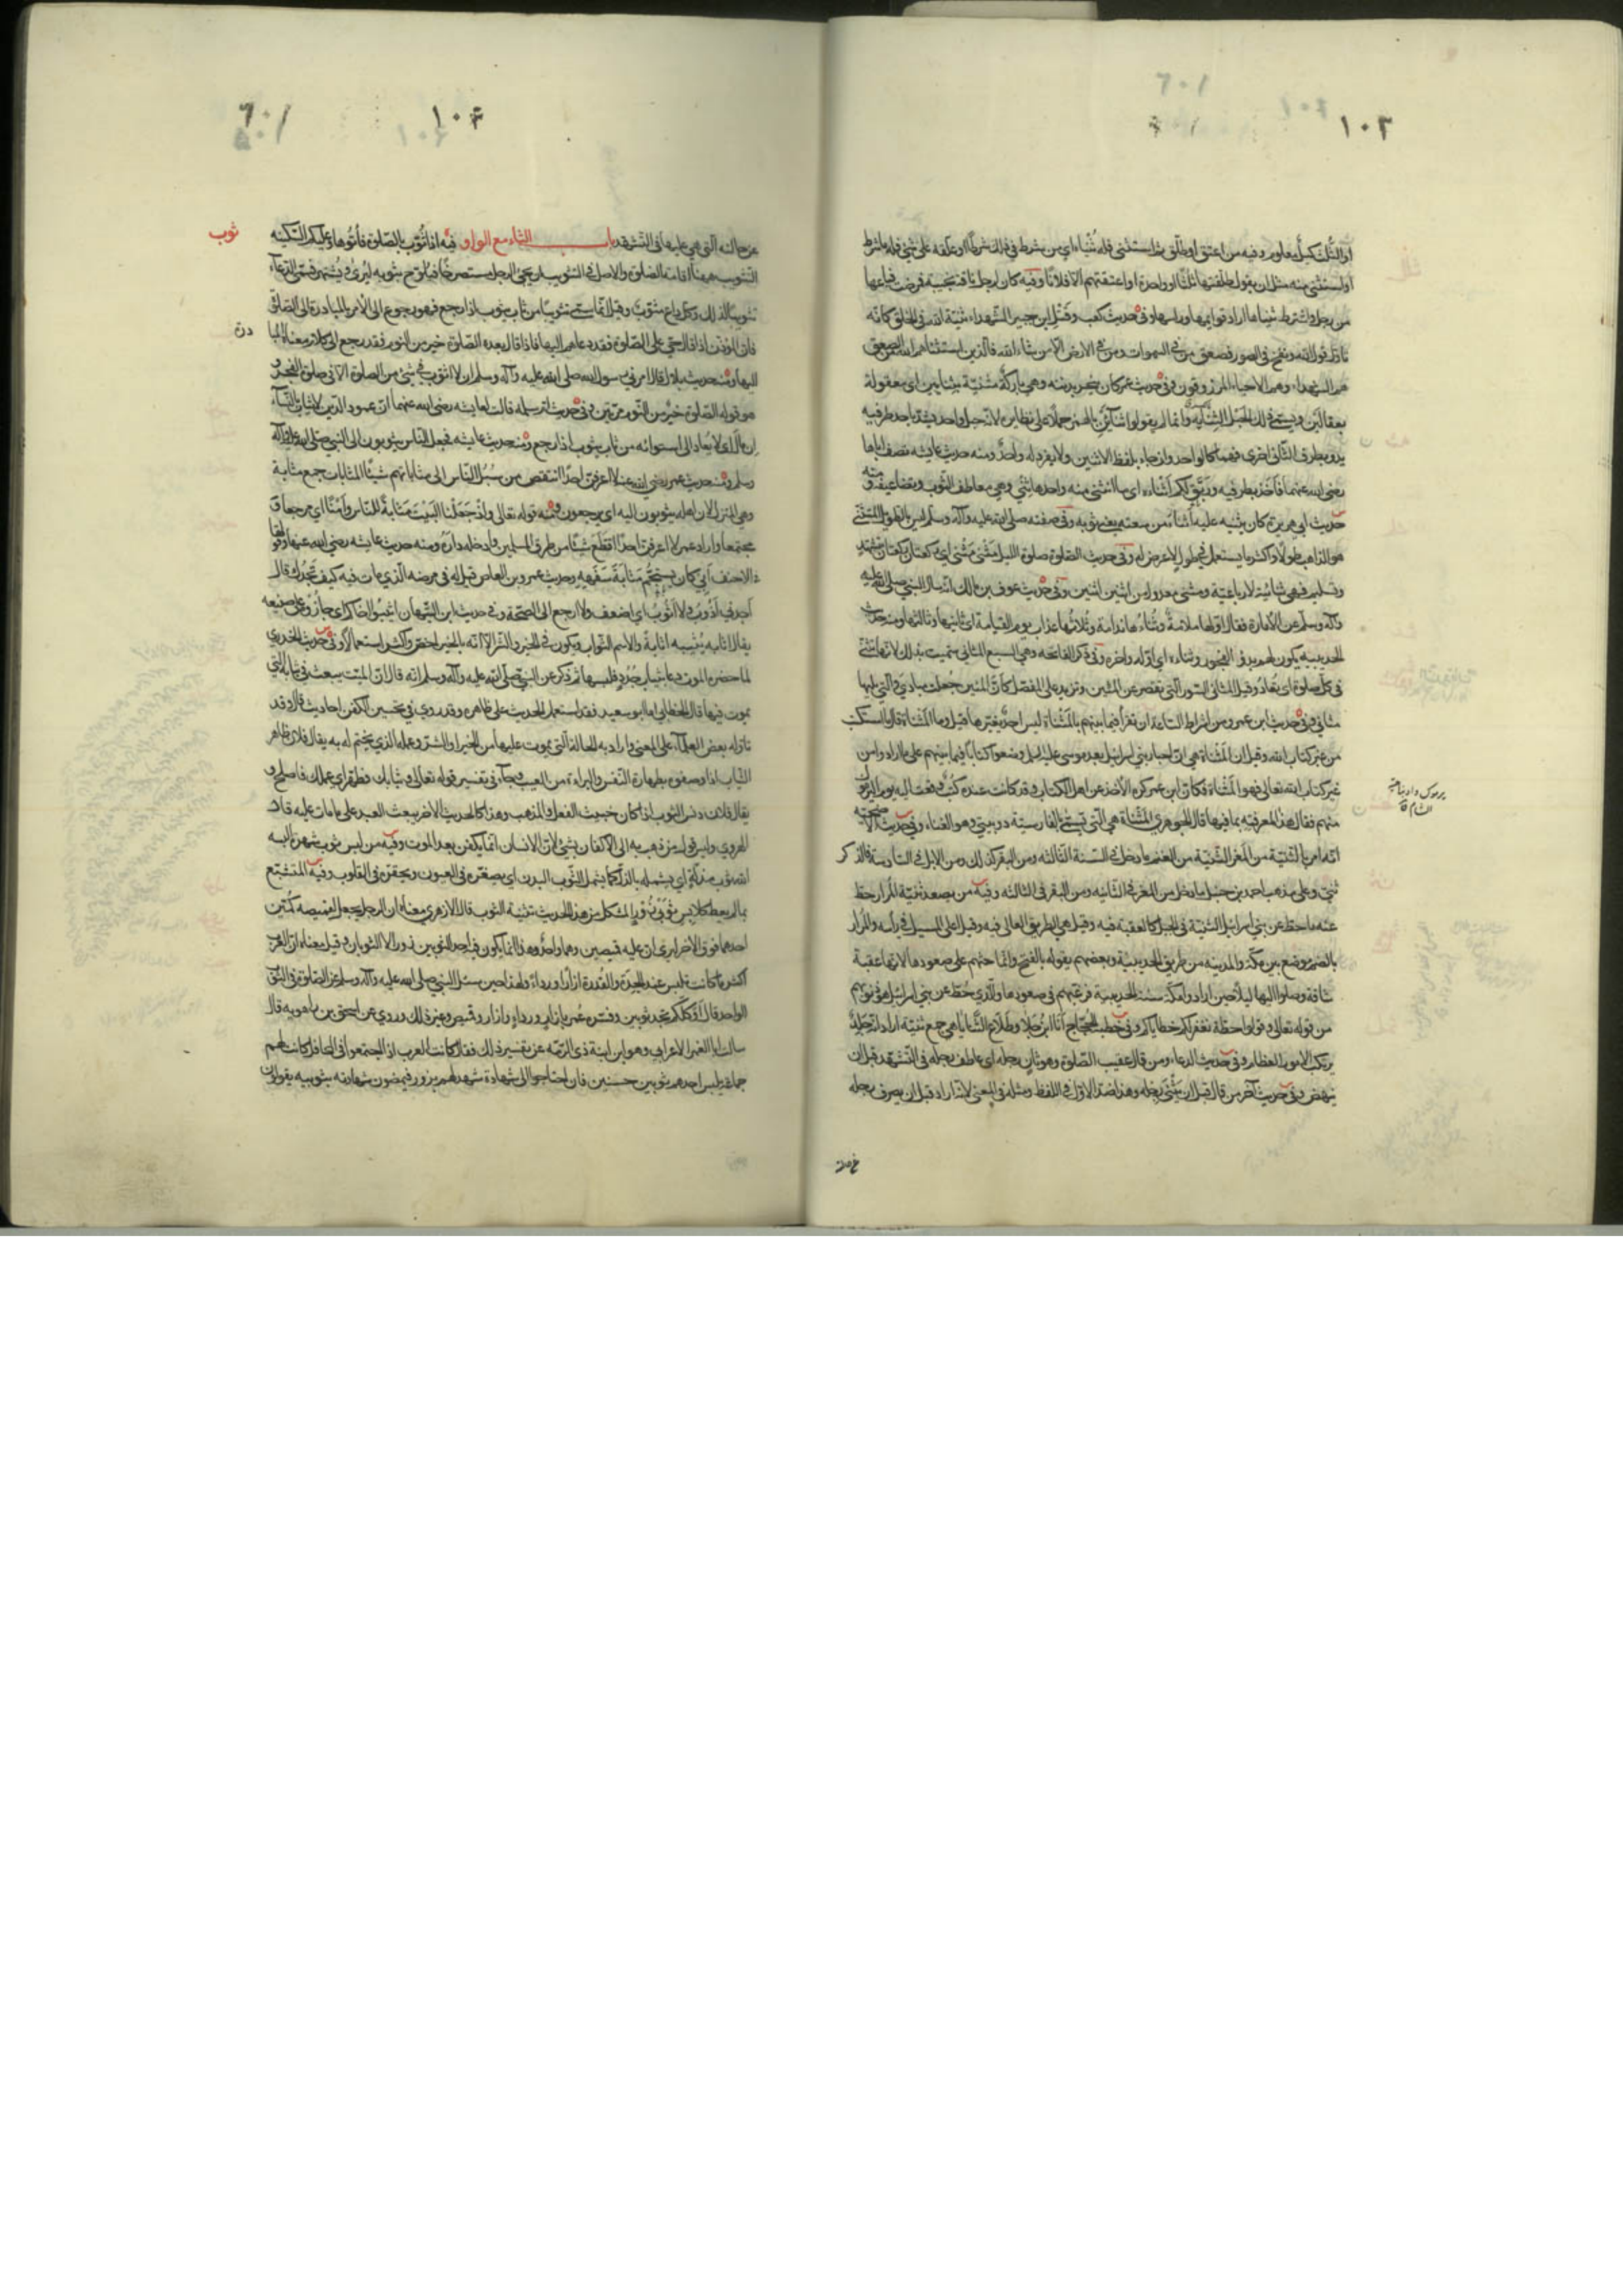 ١٠٣
او الثلث بكيل معلوم وفيه من اعتق او طلق ثم استثنى فله ثُنْياه اي من شرط في ذلك شرطا او علقه على شيء فله ما شرط
او استثنى منه مثل ان يقول طلقتها ثلثا الا واحدة او اعتقتهم الا فلانا وفيه كان لرجل ناقة نجيبة فمرضت فباعها
من رجل واشترط ثنياها اراد قوايمها وراسها وفي حديث كعب وقيل ابن جبير الشهداء ثنية الله في الخلق كانه
تاول قول الله ونفخ في الصور فصعق من في السموات ومن في الارض الا من شاء الله فالذين استثناهم الله من الصعق
هم الشهداء وهم الاحياء المرزوقون وفي حديث عمر كان ينحر بدنته وهي باركة مثنية بثنايين اي معقولة
بعقالين ويسمى ذلك الحبل الثناية وانما لم يقولوا ثنائين بالهمز حملا على نظايره لانه حبل واحد يشد باحد طرفيه
يد وبطرف الثاني اخرى فهما كالواحد وان جاء بلفظ الاثنين ولا يفرد له واحد ومنه حديث عايشه تصف اباها
رضي الله عنهما فاخذ بطرفيه وربق لكم اثناءه اي ما انثنى منه واحدها ثني وهي معاطف الثوب وتضاعيفه ومنه
حديث ابي هريرة كان يثنيه عليه اثناء من سعته يعني ثوبه وفي صفته صلى الله عليه وآله وسلم ليس بالطويل المتثني
هو الذاهب طولا واكثر ما يستعمل في طويل لا عرض له وفي حديث الصلوة صلوة الليل مثنى مثنى اي ركعتان ركعتان بتشهد
وتسليم فهي ثنائية لا رباعية ومثنى معدول من اثنين اثنين وفي حديث عوف بن مالك انه سال النبي صلى الله عليه
وآله وسلم عن الامارة فقال اولها ملامة وثناءها ندامة وثلاثها عذاب يوم القيامة اي ثانيها وثالثها ومنه حديث
الحديبيه يكون لهم بدو الفجور وثناءه اي اوله واخره وفي ذكر الفاتحه وهي السبع المثاني سميت بذلك لانها تثنى
في كل صلوة اي تعاد وقيل المثاني السور التي تقصر عن المئين وتزيد على المفصل كان المئين جعلت مبادي والتي تليها
مثاني وفي حديث ابن عمرو من اشراط الساعة ان تقرأ فيما بينهم بالمثناة ليس احد يغيرها قيل وما المثناة قال ما استكتب
من غير كتاب الله وقيل ان المثناة هي ان احبار بني اسرائيل بعد موسى عليه السلم وضعوا كتابا فيما بينهم على ما ارادوا من
غير كتاب الله تعالى فهو المثناة فكان ابن عمر كره الاخذ عن اهل الكتاب وقد كانت عنده كتب وقعت اليه يوم اليرموك
منهم فقال هذا لمعرفته بما فيها قال الجوهري المثناة هي التي تسمى بالفارسية دو بيتي وهو الغناء وفي حديث الاضحية
انه امر بالثنية من المعز الثنية من الغنم ما دخل في السنة الثالثه ومن البقر كذلك ومن الابل في السادسة والذكر
ثني وعلى مذهب احمد بن حنبل ما دخل من المعز في الثانيه ومن البقر في الثالثه وفيه من يصعد ثنية المرار حط
عنه ما حط عن بني اسرائيل الثنية في الجبل كالعقبة فيه وقيل هي الطريق العالي فيه وقيل اعلى المسيل في رأسه والمرار
بالضم موضع بين مكة والمدينه من طريق الحديبية وبعضهم يقوله بالفتح وانما حثهم على صعودها لانها عقبة
شاقة وصلوا اليها ليلا حين ارادوا مكة سنة الحديبية فرغبهم في صعودها والذي حط عن بني اسرائيل هو ذنوبهم
من قوله تعالى وقولوا حطة نغفر لكم خطاياكم وفي خطبة الحجاج انا ابن جلا وطلاع الثنايا هي جمع ثنية اراد انه جلد
يرتكب الامور العظام وفي حديث الدعاء ومن قال عقيب الصلوة وهو ثان رجله اي عاطف رجله في التشهد قبل ان
ينهض وفي حديث آخر من قال قبل ان يثني رجله وهذا ضد الاول في اللفظ ومثله في المعنى لانه اراد قبل ان يصرف رجله
الشام
١٠٤
عن حالته التي هي عليها في التشهد باب الثاء مع الواو فيه اذا ثوب بالصلوة فأتوها وعليكم السكينه
ثوب
التثويب ههنا اقامة الصلوة والاصل في التثويب ان يجيئ الرجل مستصرخا فيلوح بثوبه ليرى ويشتهر فسمى الدعاء
تثويبا لذلك وكل داع مثوب وقيل انما سمى تثويبا من ثاب يثوب اذا رجع فهو رجوع الى الامر بالمبادرة الى الصلوة
فان المؤذن اذا قال حي على الصلوة فقد دعاهم اليها فاذا قال بعده الصلوة خير من النوم فقد رجع الى كلام معناه المبا
درة
اليها ومنه حديث بلال قال امرني رسول الله صلى الله عليه وآله وسلم ان لا اثوب في شيء من الصلوة الا في صلوة الفجر و
هو قوله الصلوة خير من النوم مرتين وفي حديث ام سلمه قالت لعايشه رضي الله عنهما ان عمود الدين لا يثاب بالنساء
ان مال اي لا يعاد الى استوائه من ثاب يثوب اذا رجع ومنه حديث عايشه فجعل الناس يثوبون الى النبي صلى الله عليه وآله
وسلم ومنه حديث عمر رضي الله عنه لا اعرفن احدا انتقص من سبل الناس الى مثاباتهم شيئا المثابات جمع مثابة
وهي المنزل لان اهله يثوبون اليه اي يرجعون ومنه قوله تعالى واذ جعلنا البيت مثابة للناس وأمنا اي مرجعا و
مجتمعا واراد عمر لا اعرفن احدا اقتطع شيئا من طرق المسلمين وادخله داره ومنه حديث عايشه رضي الله عنها وقولها
في الاحنف أبي كان يستجم مثابة سفهه وحديث عمرو بن العاص قيل له في مرضه الذي مات فيه كيف تجدك قال
اجدني اذوب ولا اثوب اي اضعف ولا ارجع الى الصحة وفي حديث ابن التيهان اثيبوا اخاكم اي جازوه على صنيعه
يقال اثابه يثيبه اثابة والاسم الثواب ويكون في الخير والشر الا انه بالخير اخص واكثر استعمالا وفي حديث الخدري
لما حضره الموت دعا بثياب جدد فلبسها ثم ذكر عن النبي صلى الله عليه وآله وسلم انه قال ان الميت يبعث في ثيابه التي
يموت فيها قال الخطابي اما ابو سعيد فقد استعمل الحديث على ظاهره وقد روي في تحسين الكفن احاديث قال وقد
تاوله بعض العلماء على المعنى واراد به الحالة التي يموت عليها من الخير او الشر وعمله الذي يختم له به يقال فلان طاهر
الثياب اذا وصفوه بطهارة النفس والبراءة من العيب وجاء في تفسير قوله تعالى وثيابك فطهر اي عملك فاصلح و
يقال فلان دنس الثوب اذا كان خبيث الفعل والمذهب وهذا كالحديث الاخر يبعث العبد على ما مات عليه قال
الهروي وليس قول من ذهب به الى الاكفان بشيء لان الانسان انما يكفن بعد الموت وفيه من لبس ثوب شهرة البسه
الله ثوب مذلة اي يشمله بالذل كما يشمل الثوب البدن اي يصغره في العيون ويحقره في القلوب وفيه المتشبع
بما لم يعط كلابس ثوبي زور المشكل من هذا الحديث تثنية الثوب قال الازهري معناه ان الرجل يجعل لقميصه كمين
احدهما فوق الاخر ليرى ان عليه قميصين وهما واحد وهذا انما يكون فيه احد الثوبين زورا لا الثوبان وقيل معناه ان العرب
اكثر ما كانت تلبس عند الجدة والقدرة ازارا ورداء ولهذا حين سئل النبي صلى الله عليه وآله وسلم عن الصلوة في الثوب
الواحد قال أوكلكم يجد ثوبين وفسره عمر بازار ورداء وازار وقميص وغير ذلك وروي عن اسحق بن راهويه قال
سالت ابا الغمر الاعرابي وهو ابن ابنة ذي الرمه عن تفسير ذلك فقال كانت العرب اذا اجتمعوا في المحافل كانت لهم
جماعة يلبس احدهم ثوبين حسنين فان احتاجوا الى شهادة شهد لهم بزور فيمضون شهادته بثوبيه يقولون